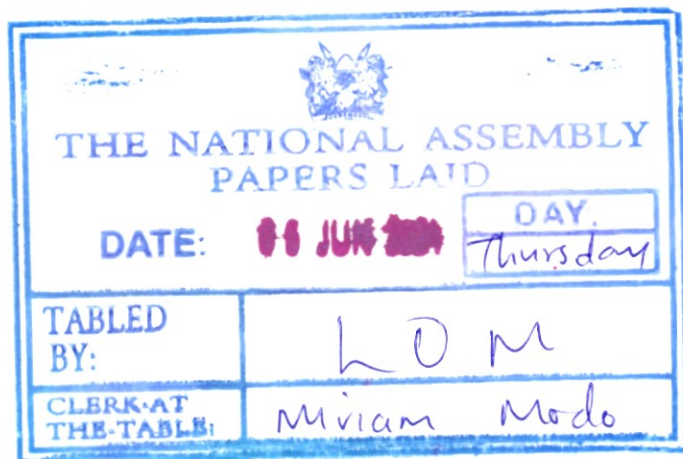 THE NATIONAL ASSEMBLY
PAPERS LAID
DATE: 06 JUN 2024
DAY.
Thursday
TABLED
BY:
LOM
CLERK-AT
THE-TABLE:
Miriam Modo